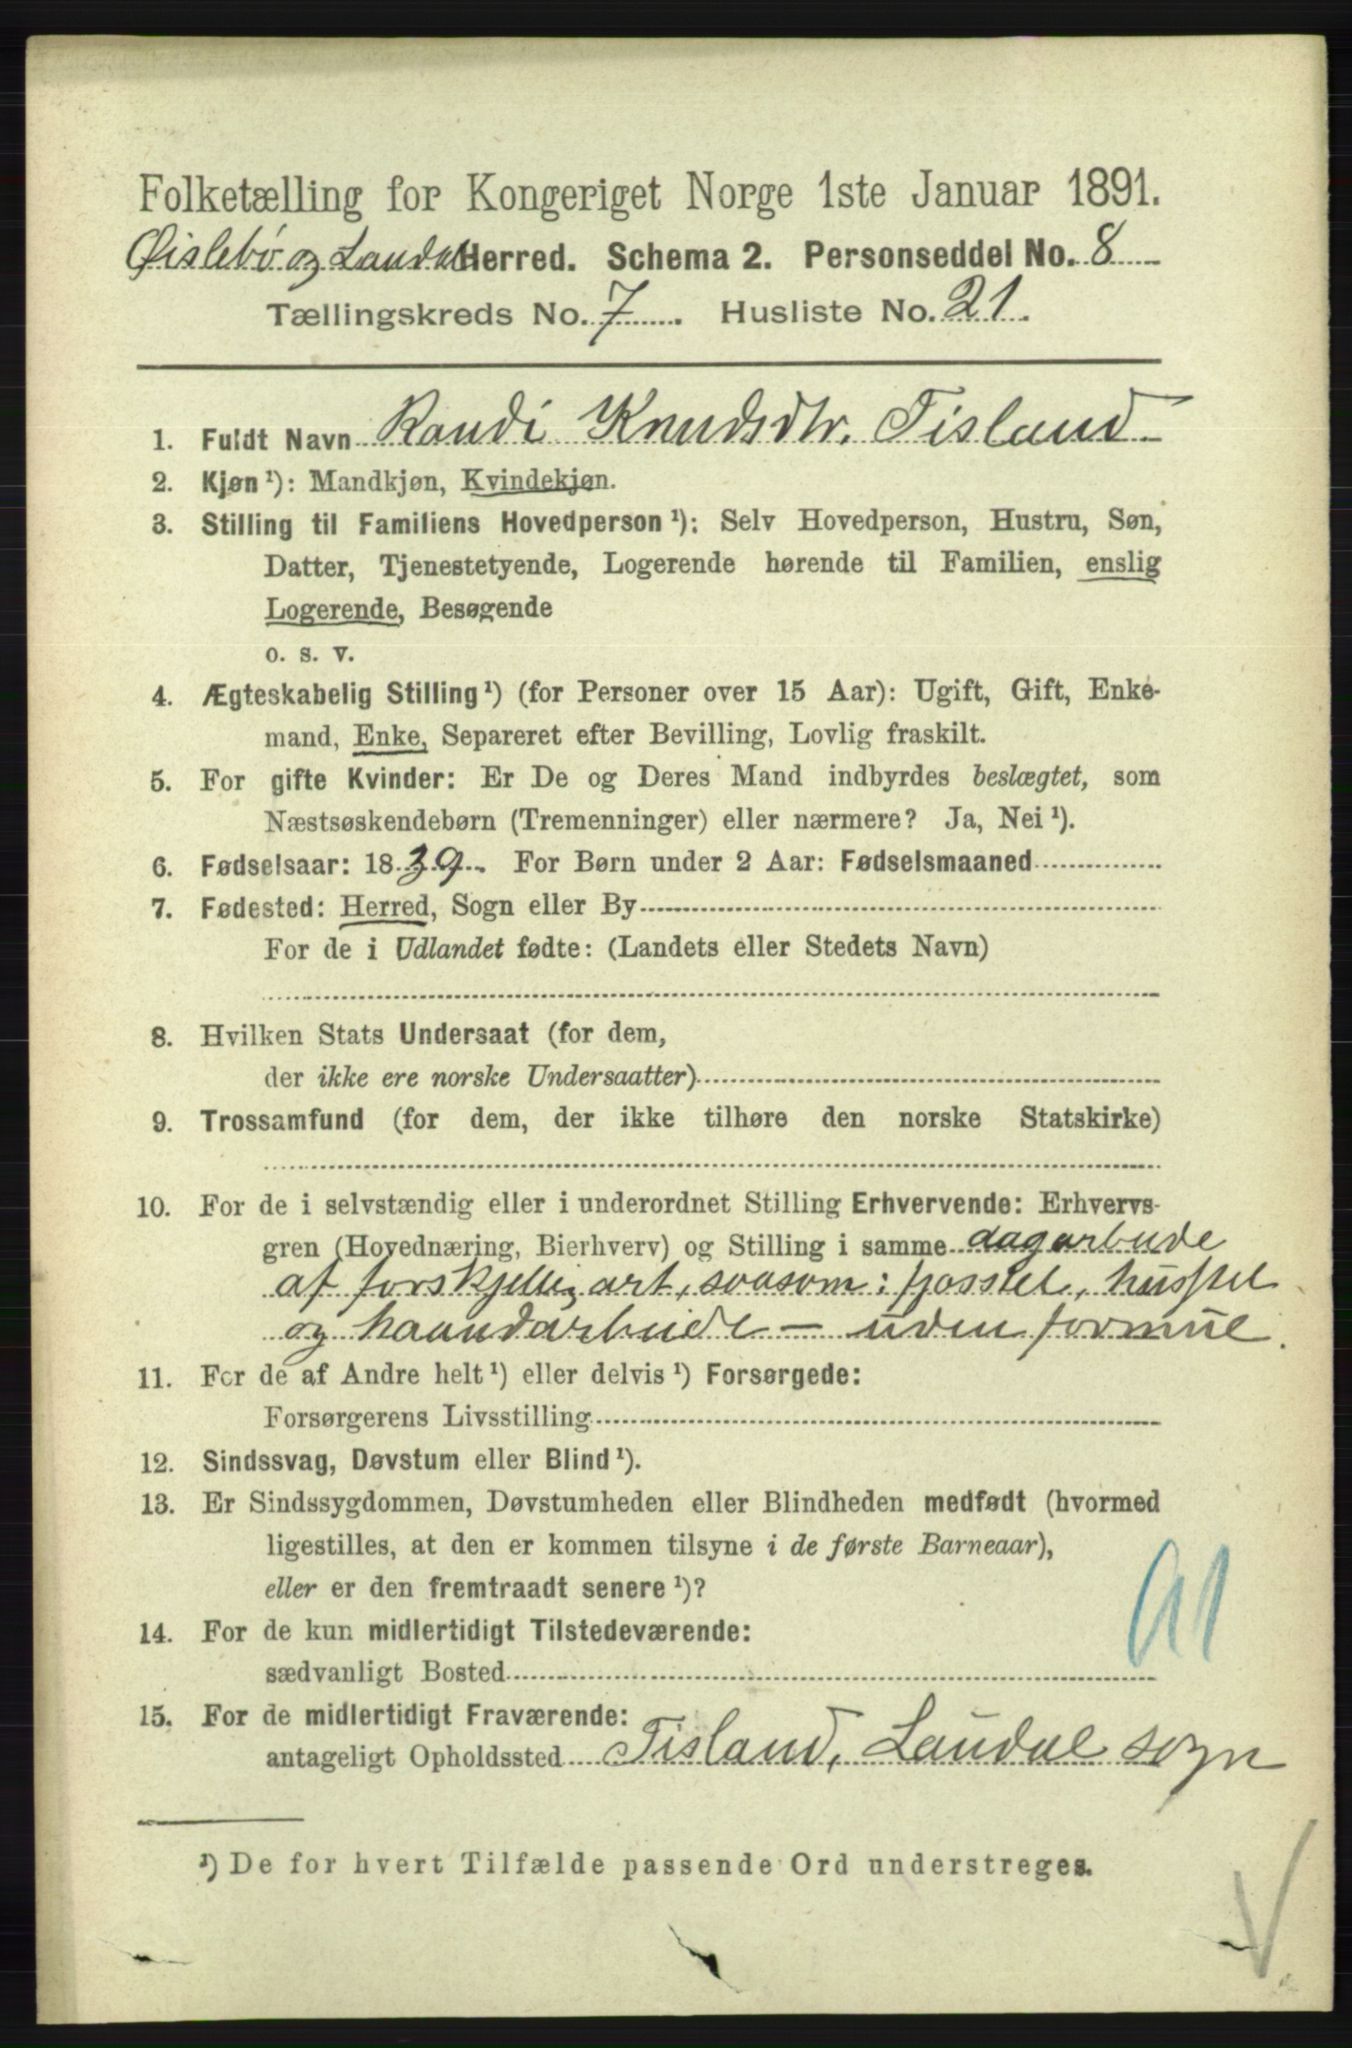 Folketælling for Kongeriget Norge 1ste Januar 1891.
Øislebø og Laudal Herred. Schema 2. Personseddel No. 8
Tællingskreds No. 7. Husliste No. 21.
1. Fuldt Navn Randi Knudsdtr. Tisland
2. Kjøn ¹): Mandkjøn, Kvindekjøn.
3. Stilling til Familiens Hovedperson ¹): Selv Hovedperson, Hustru, Søn,
Datter, Tjenestetyende, Logerende hørende til Familien, enslig
Logerende, Besøgende
o. s. v.
4. Ægteskabelig Stilling ¹) (for Personer over 15 Aar): Ugift, Gift, Enke-
mand, Enke, Separeret efter Bevilling, Lovlig fraskilt.
5. For gifte Kvinder: Er De og Deres Mand indbyrdes beslægtet, som
Næstsøskendebørn (Tremenninger) eller nærmere? Ja, Nei ¹).
6. Fødselsaar: 1839. For Børn under 2 Aar: Fødselsmaaned
7. Fødested: Herred, Sogn eller By
For de i Udlandet fødte: (Landets eller Stedets Navn)
8. Hvilken Stats Undersaat (for dem,
der ikke ere norske Undersaatter)
9. Trossamfund (for dem, der ikke tilhøre den norske Statskirke)
10. For de i selvstændig eller i underordnet Stilling Erhvervende: Erhvervs-
gren (Hovednæring, Bierhverv) og Stilling i samme dagarbeide
af forskjellig art, saasom: fjosstel, husstel
og haandarbeide - uden formue.
11. For de af Andre helt ¹) eller delvis ¹) Forsørgede:
Forsørgerens Livsstilling
12. Sindssvag, Døvstum eller Blind ¹).
13. Er Sindssygdommen, Døvstumheden eller Blindheden medfødt (hvormed
ligestilles, at den er kommen tilsyne i de første Barneaar),
eller er den fremtraadt senere ¹)?
14. For de kun midlertidigt Tilstedeværende:
sædvanligt Bosted
15. For de midlertidigt Fraværende:
antageligt Opholdssted Tisland, Laudal sogn
¹) De for hvert Tilfælde passende Ord understreges.